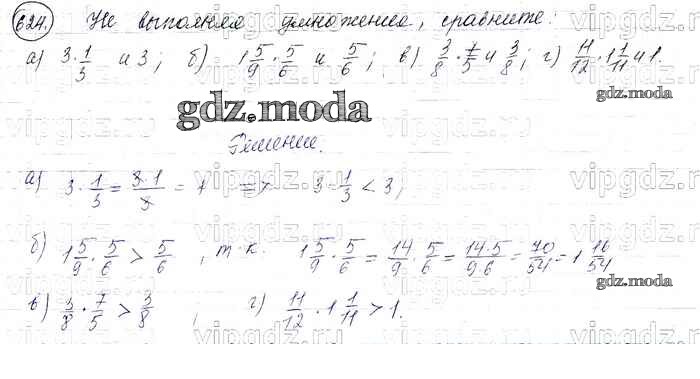 624. Не выполняя умножение, сравните:
а) 3·1/3 и 3; б) 1 5/9·5/6 и 5/6; в) 3/8·7/5 и 3/8; г) 11/12·1 1/11 и 1.
gdz.moda
gdz.moda
Решение.
а) 3·1/3 = 3·1/3 = 1 => 3·1/3 < 3;
б) 1 5/9·5/6 > 5/6, т.к. 1 5/9·5/6 = 14/9·5/6 = 14·5/9·6 = 70/54 = 1 16/54
gdz.moda
в) 3/8·7/5 > 3/8; г) 11/12·1 1/11 > 1.